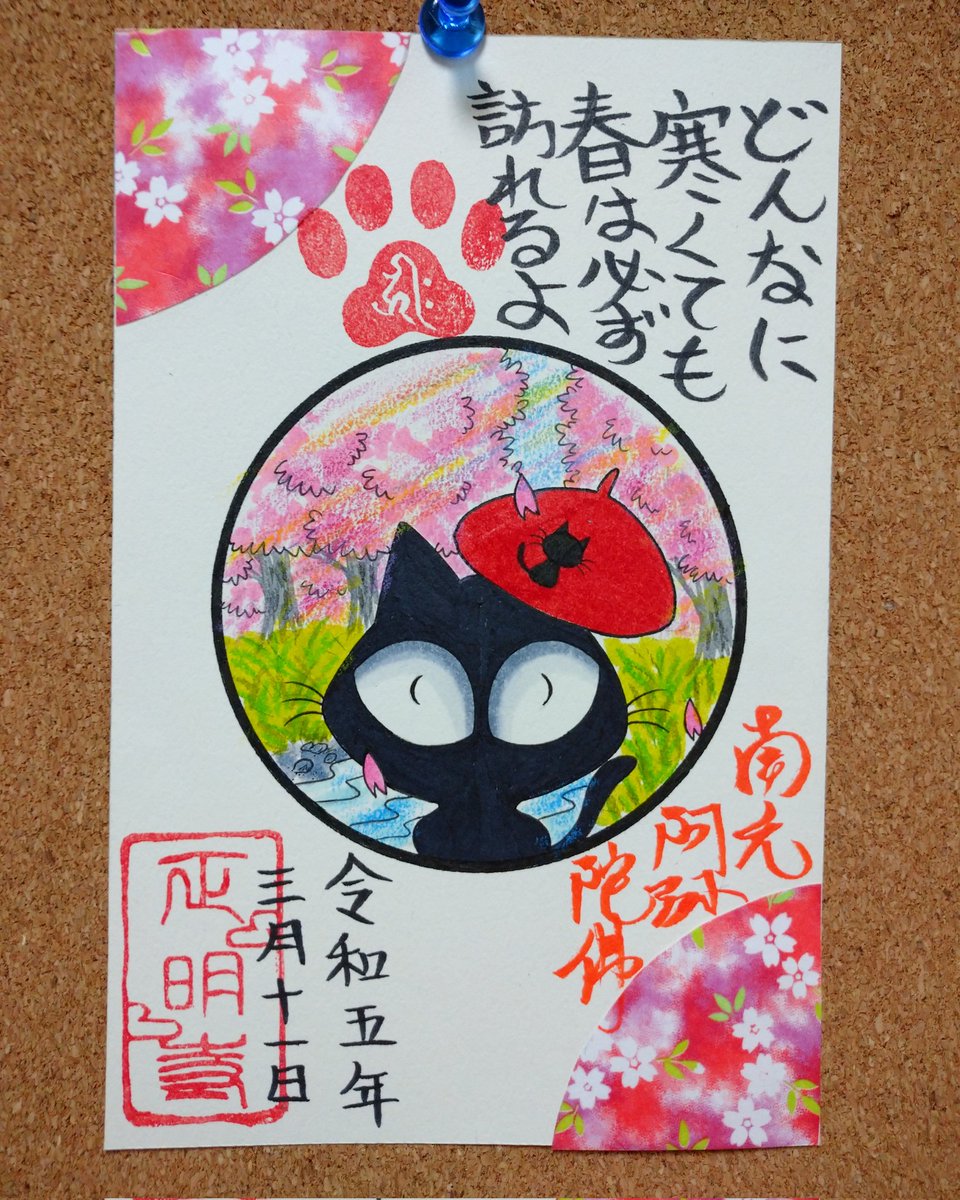 どんなに
寒くても
春は必ず
訪れるよ
南无
阿弥
陀佛
令和五年
三月十一日
正明寺